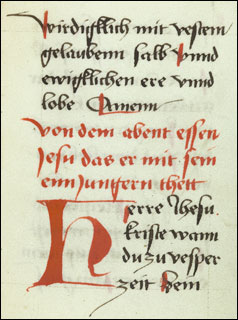 wirdiklich mit vestem
gelaubenn salb vnnd
ewiklichen ere vnnd
lobe Amenn
Von dem abent essen
Jesu das er mit sein
enn Jungern thett
Herre Jhesu
kriste wann
du zu vesper
zeit dem